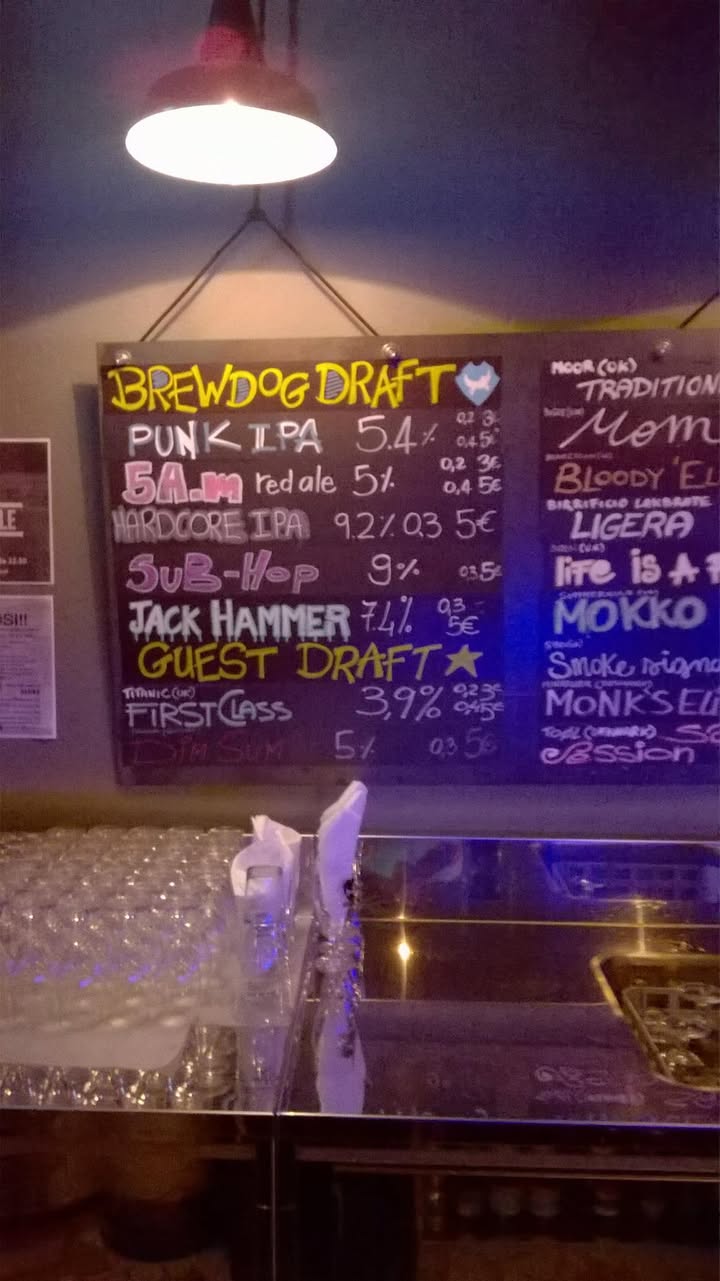 BREWDOG DRAFT
PUNK IPA 5.4% 0,2 3€
0,4 5€
5A.m red ale 5% 0,2 3€
0,4 5€
HARDCORE IPA 9.2% 0.3 5€
SUB-HOP 9% 0.3 5€
JACK HAMMER 7.4% 0,3
5€
GUEST DRAFT
TITANIC (UK)
FIRST CLASS 3,9% 0,2 3€
0,4 5€
DIM SUM 5% 0,3 5€
MOOR (UK)
TRADITION
Mom
BLOODY 'EL
BIRRIFICIO LAMBRATE
LIGERA
life is A
MOKKO
Smoke signa
MONK'S EL
TOOL (DENMARK)
Session
LE
OSI!!